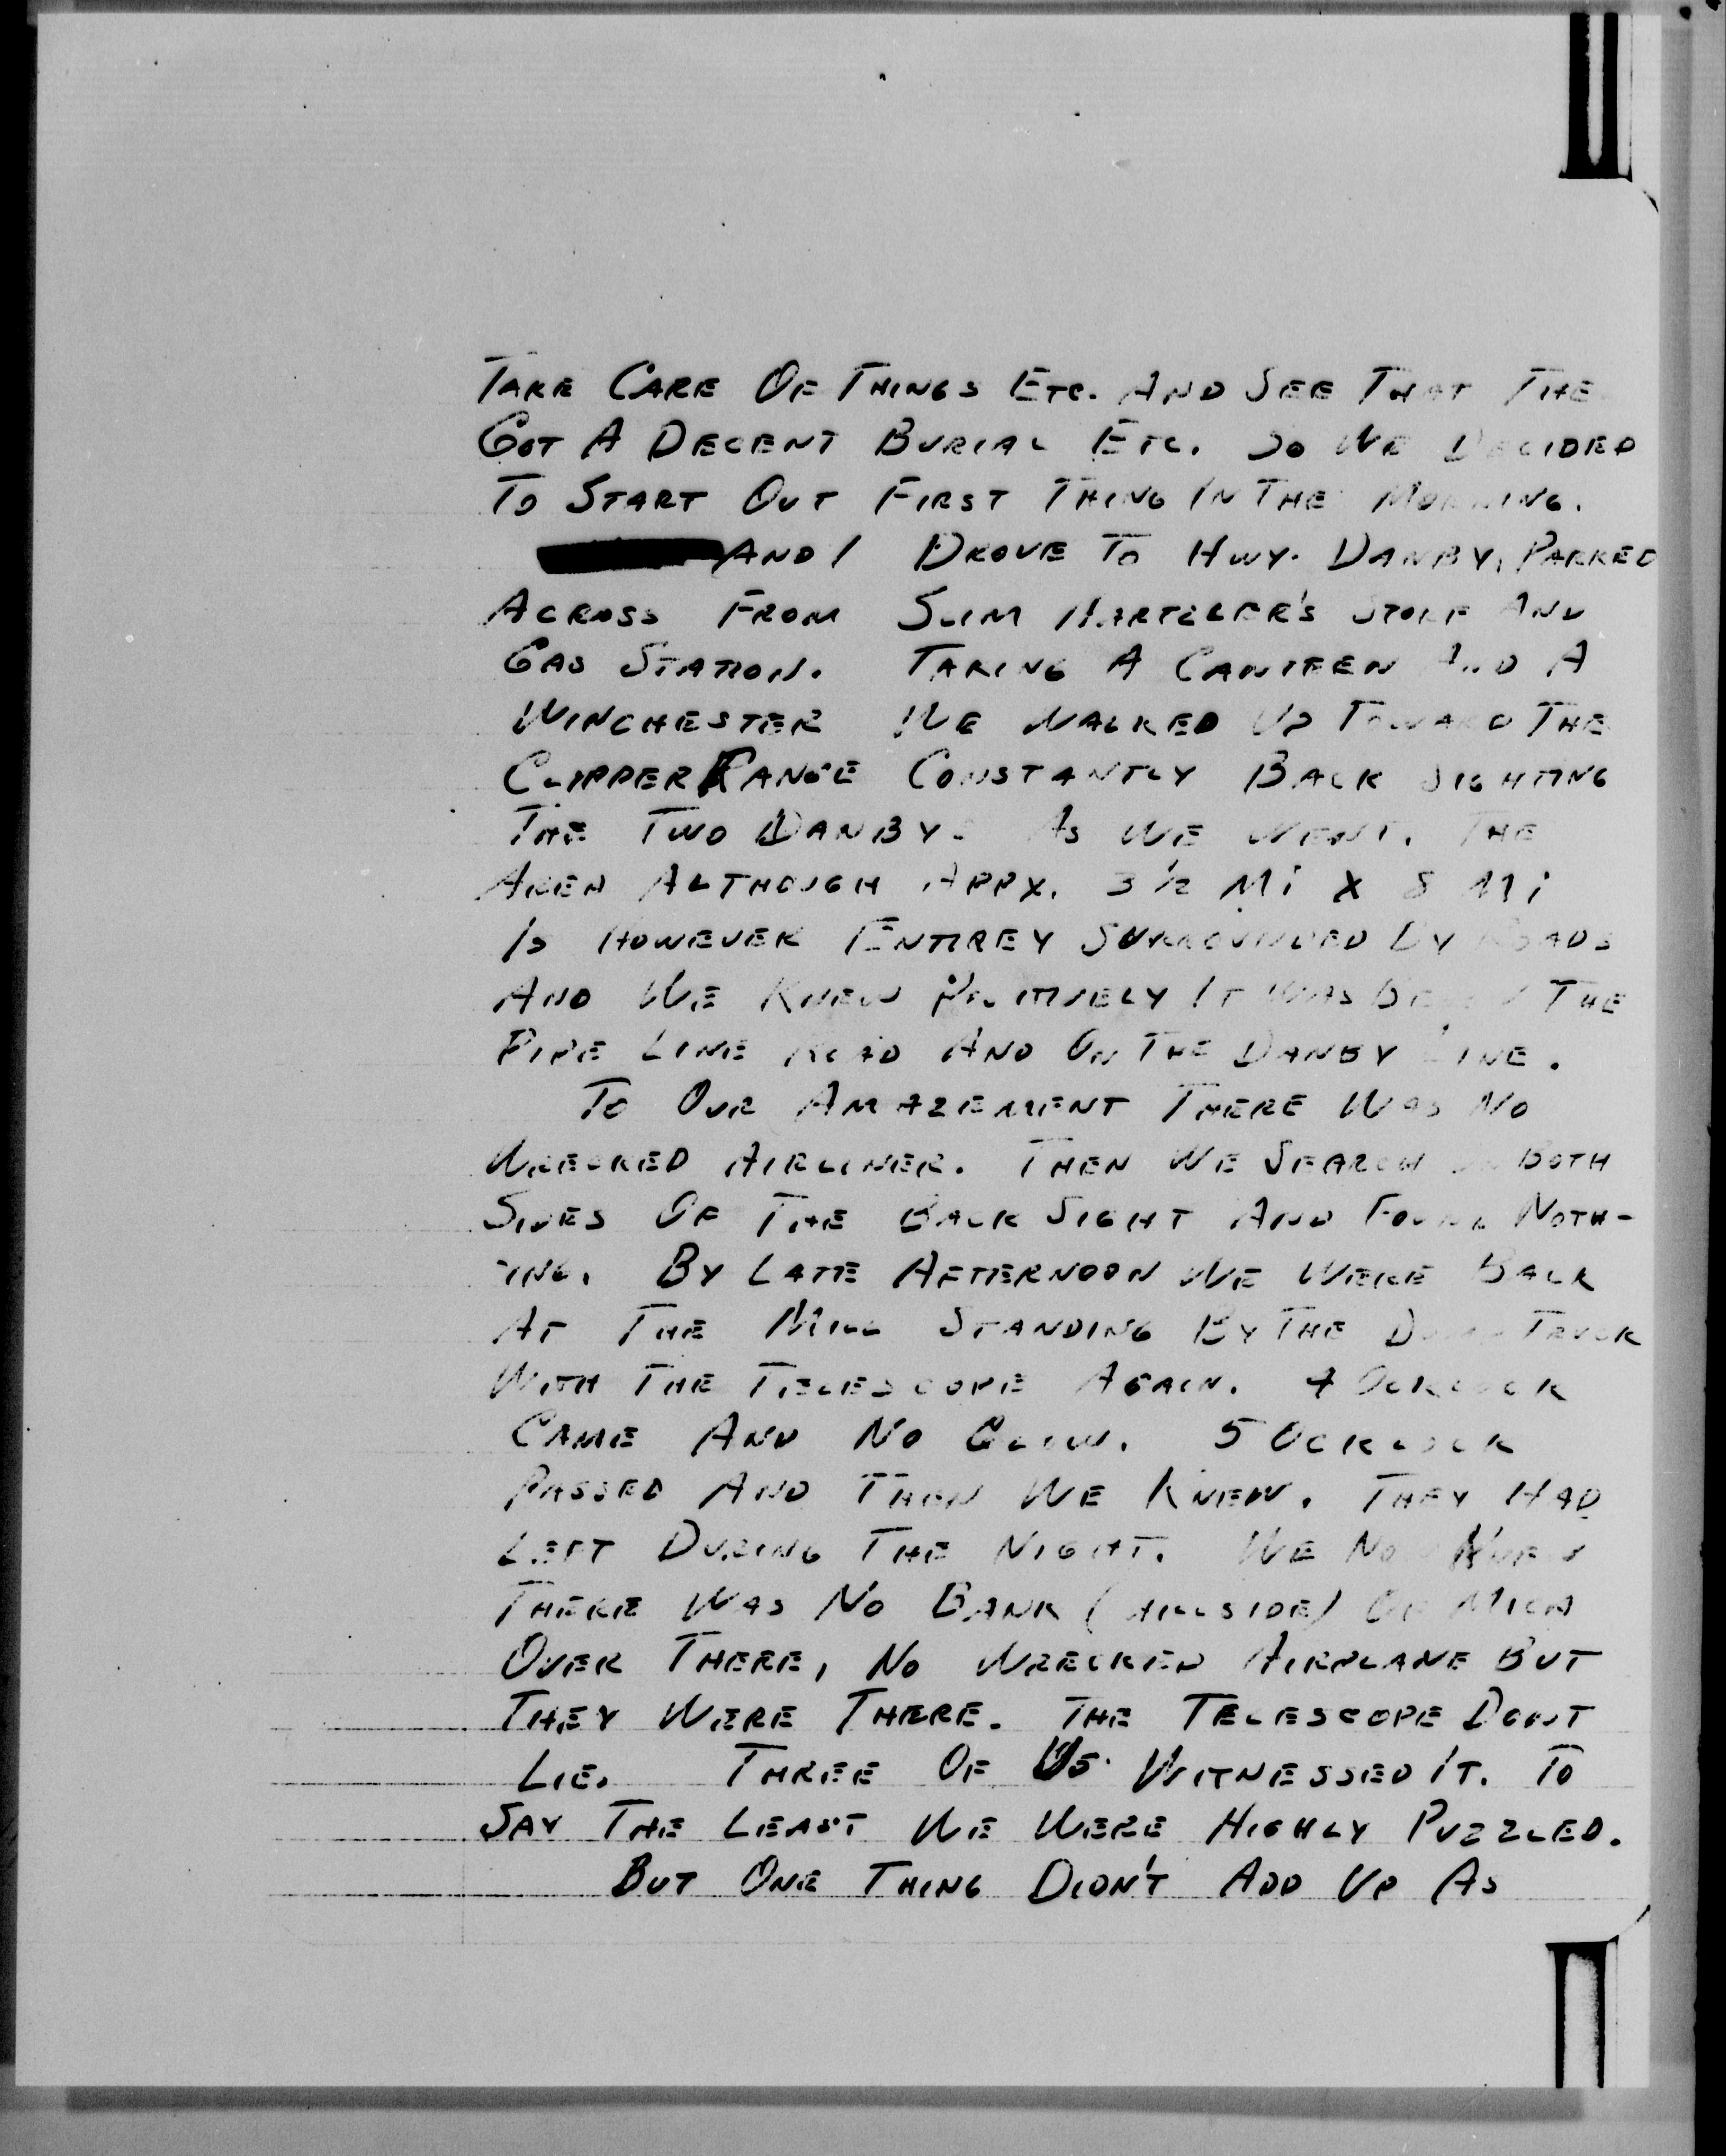 TAKE CARE OF THINGS ETC. AND SEE THAT THE
GOT A DECENT BURIAL ETC. SO WE DECIDED
TO START OUT FIRST THING IN THE MORNING.
AND I DROVE TO HWY. DANBY, PARKED
ACROSS FROM SLIM HARTZLER'S STORE AND
GAS STATION. TAKING A CANTEEN AND A
WINCHESTER WE WALKED UP TOWARD THE
CLIPPER RANGE CONSTANTLY BACK SIGHTING
THE TWO DANBYS AS WE WENT. THE
AREA ALTHOUGH APPX. 3 1/2 MI X 8 MI
IS HOWEVER ENTIREY SURROUNDED BY ROADS
AND WE KNEW POSITIVELY IT WAS THE
PIPE LINE ROAD AND ON THE DANBY LINE.
TO OUR AMAZEMENT THERE WAS NO
WRECKED AIRLINER. THEN WE SEARCH BOTH
SIDES OF THE BACK SIGHT AND FOUND NOTH-
ING. BY LATE AFTERNOON WE WERE BACK
AT THE MILL STANDING BY THE DUMP TRUCK
WITH THE TELESCOPE AGAIN. 4 OCKLOCK
CAME AND NO GLOW. 5 OCKLOCK
PASSED AND THEN WE KNEW. THEY HAD
LEFT DURING THE NIGHT. WE NOW KNEW
THERE WAS NO BANK (HILLSIDE) OF MICA
OVER THERE, NO WRECKED AIRPLANE BUT
THEY WERE THERE. THE TELESCOPE DONT
LIE. THREE OF US WITNESSED IT. TO
SAY THE LEAST WE WERE HIGHLY PUZZLED.
BUT ONE THING DIDN'T ADD UP AS